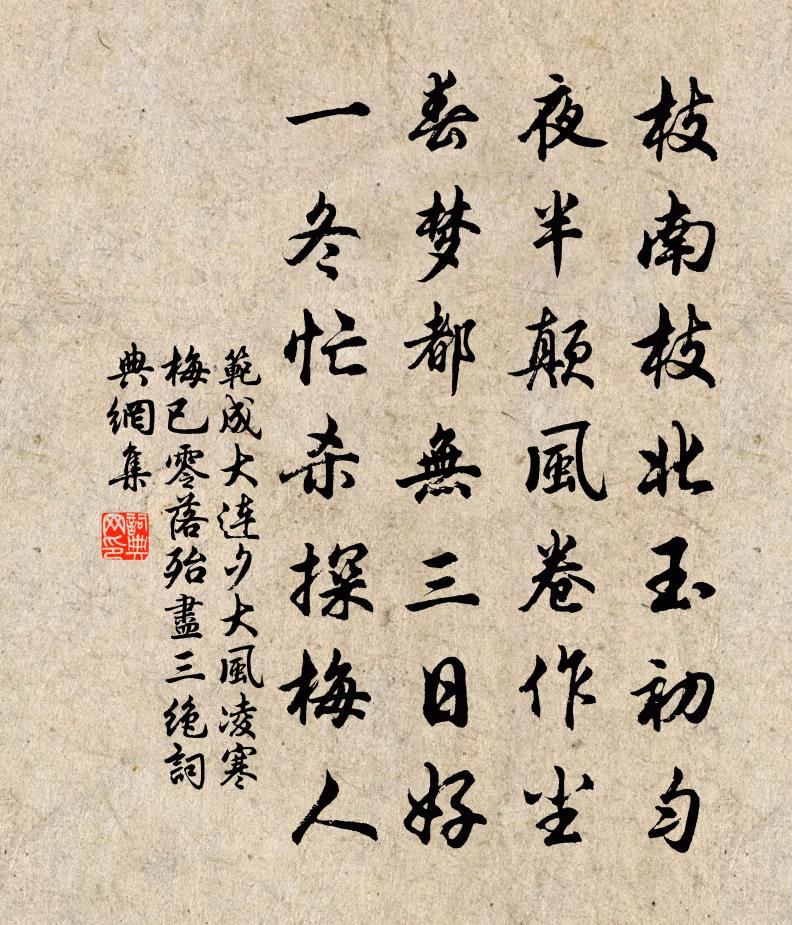 枝南枝北玉初勻
夜半顛風卷作尘
春梦都無三日好
一冬忙杀探梅人
範成大连夕大風凌寒
梅已零落殆盡三绝詞
典網集
詞典网印